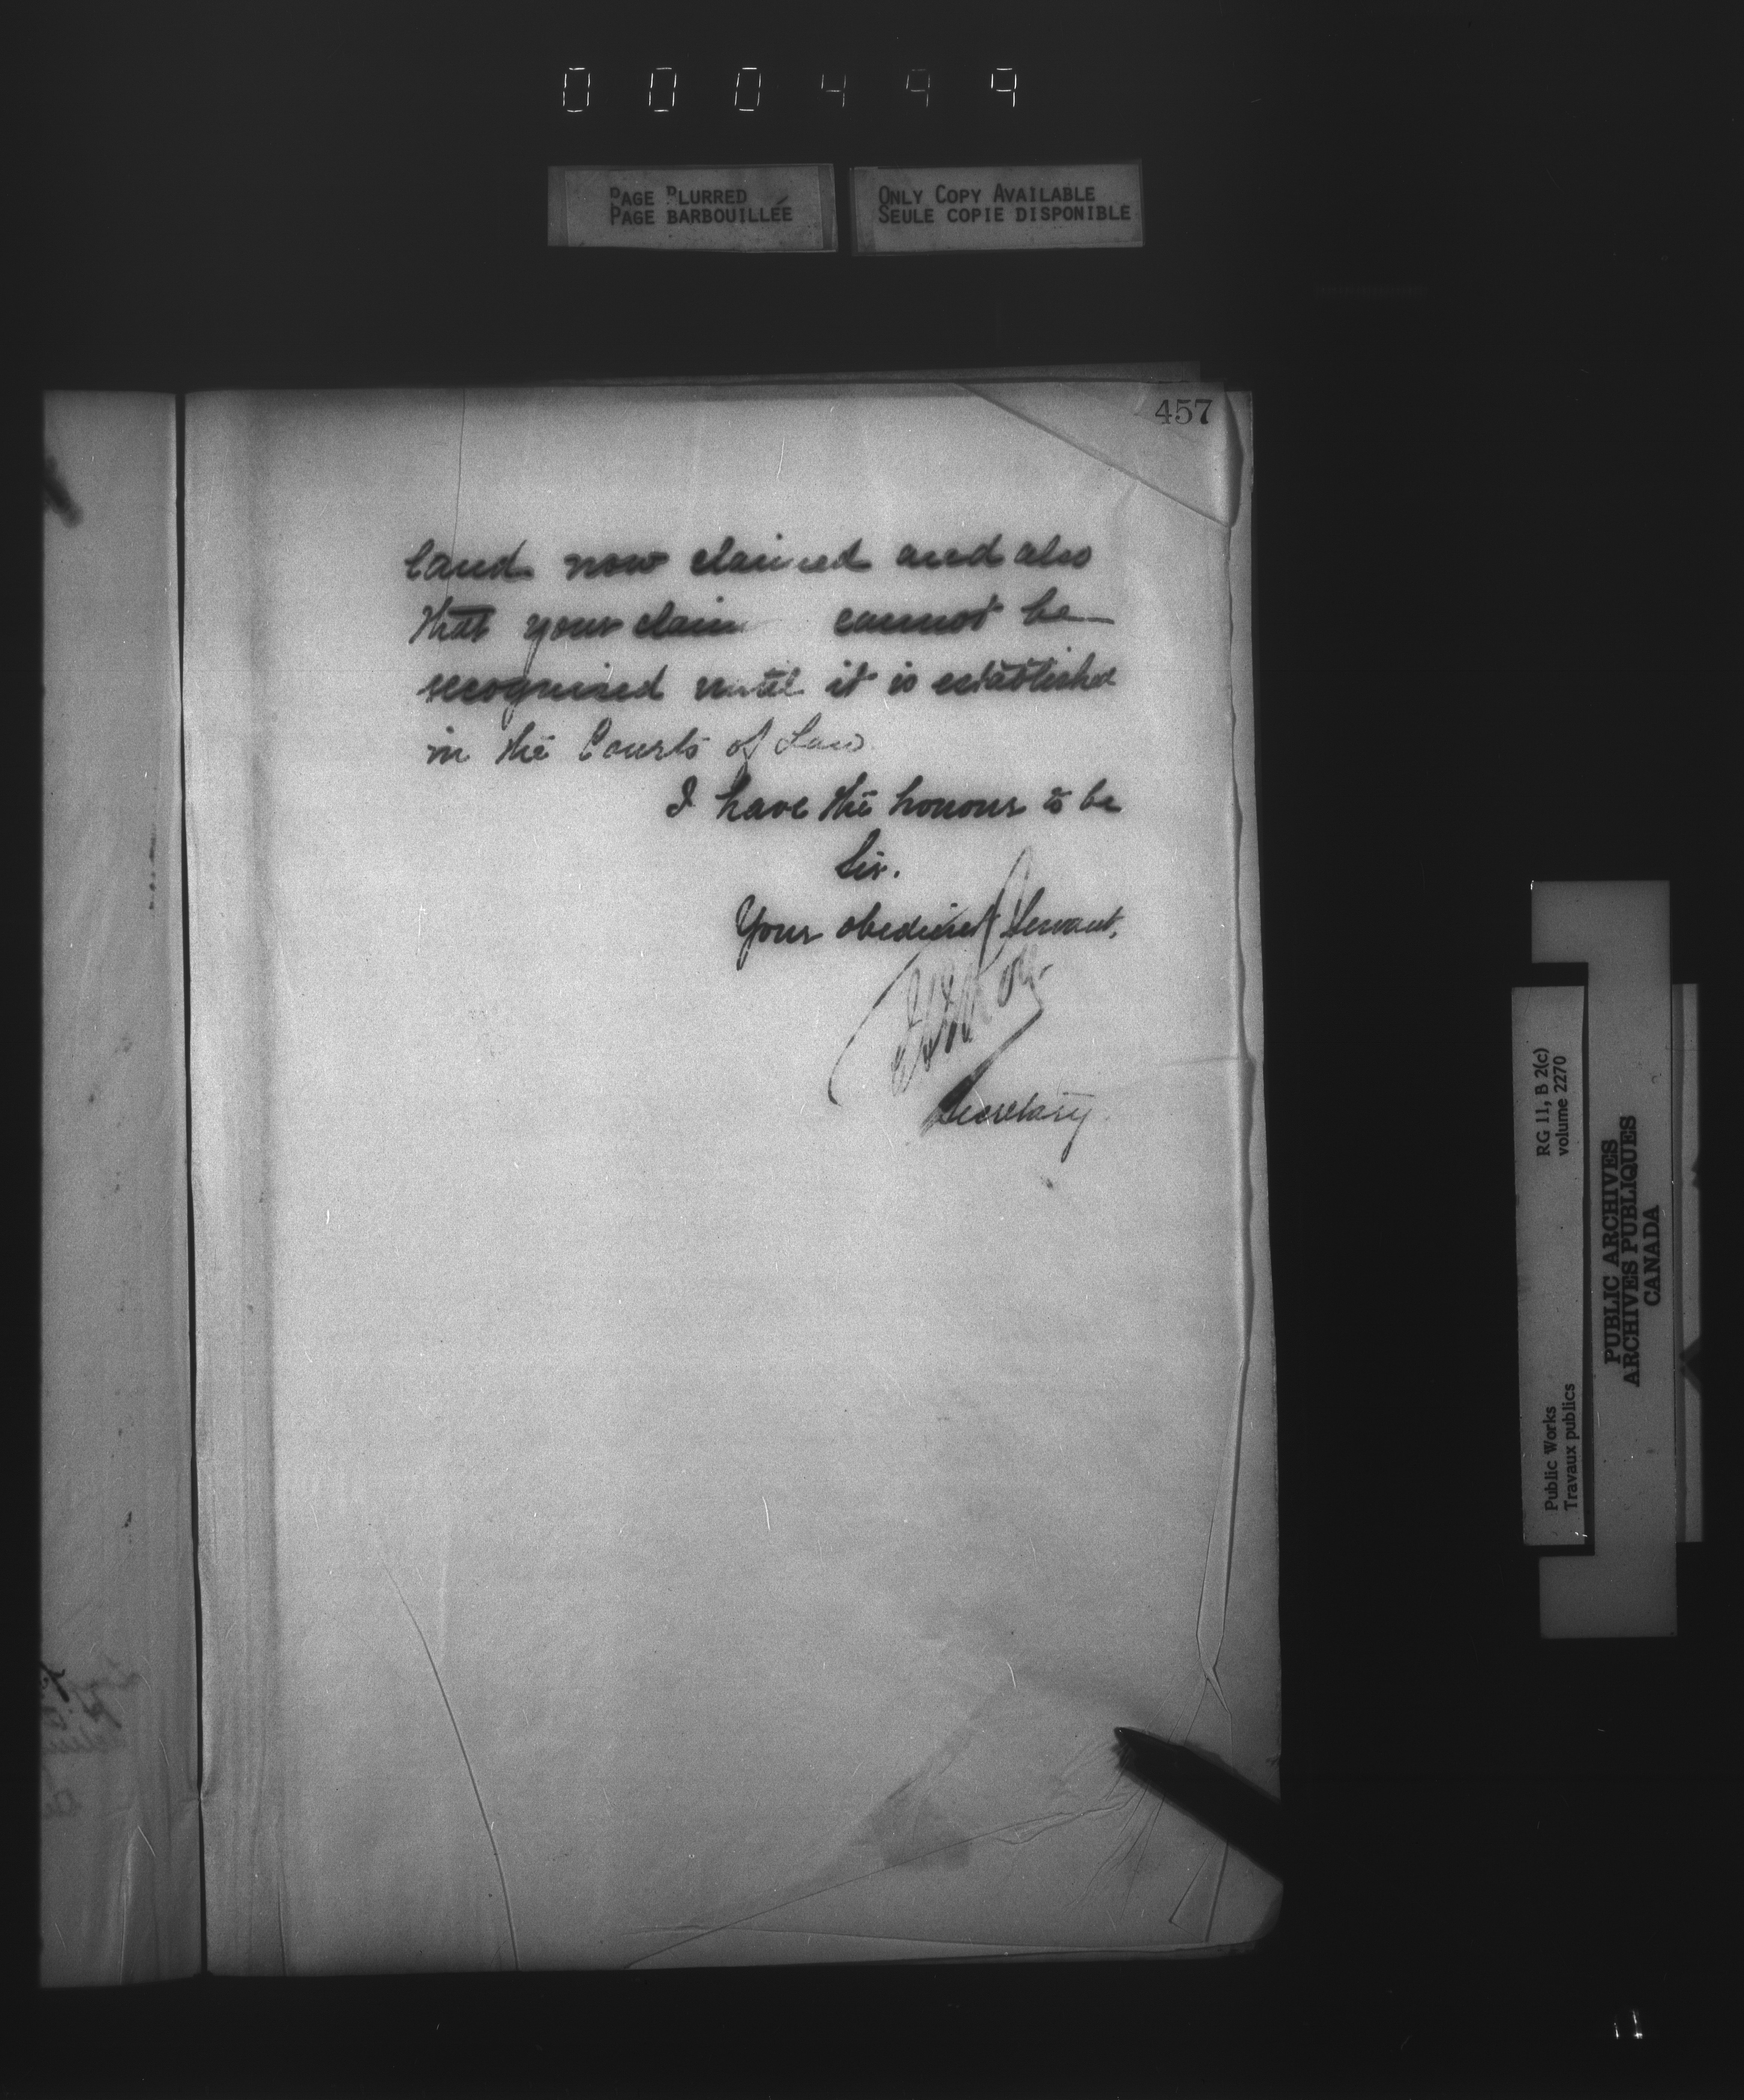 000499
PAGE BLURRED
PAGE BARBOUILLÉE
ONLY COPY AVAILABLE
SEULE COPIE DISPONIBLE
457
land now claimed and also
that your claim cannot be
recognized until it is established
in the Courts of Law
I have the honour to be
Sir.
Your obedient Servant,
Secretary
RG 11, B 2(c)
volume 2270
Public Works
Travaux publics
PUBLIC ARCHIVES
ARCHIVES PUBLIQUES
CANADA